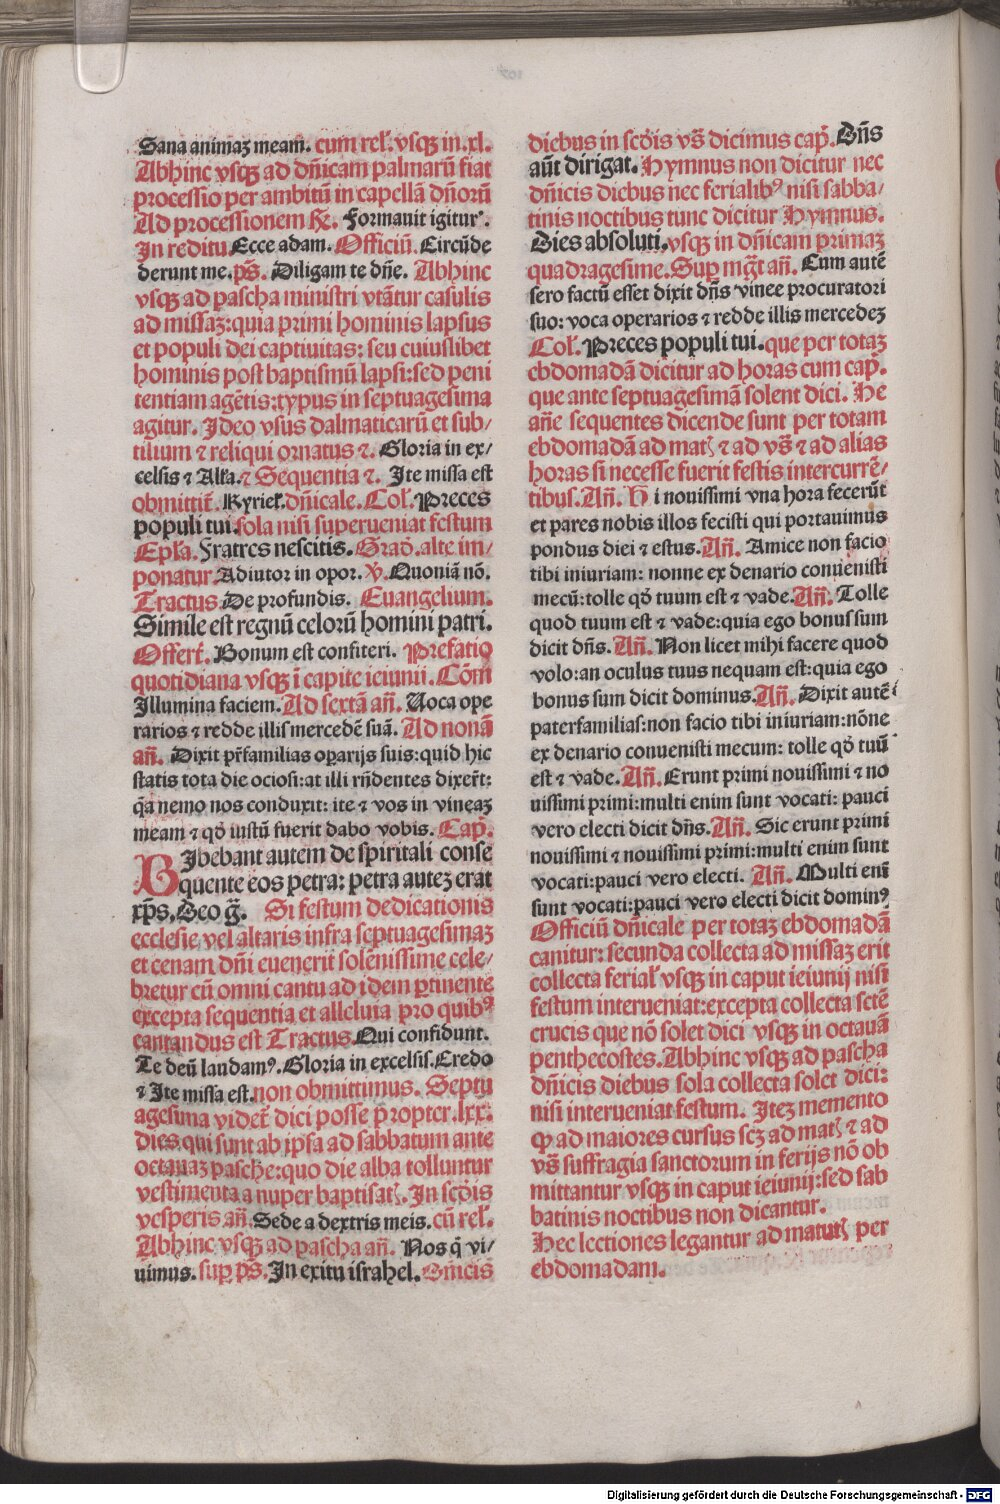 Sana animaȝ meam̄. cum rel̄. vsqꝫ in .xl.
Abhinc vsqꝫ ad dn̄icam palmarū fiat
processio per ambitū in capellā dn̄orū
Ad processionem ℟. Formauit igitur.
In reditu Ecce adam. Officiū. Circūde
derunt me. ps̄. Diligam te dn̄e. Abhinc
vsqꝫ ad pascha ministri vtātur casulis
ad missaȝ: quia primi hominis lapsus
et populi dei captiuitas: seu cuiuslibet
hominis post baptismū lapsi: sed peni
tentiam agētis: typus in septuagesima
agitur. Ideo vsus dalmaticarū et sub/
tilium ⁊ reliqui ornatus ⁊. Gloria in ex/
celsis ⁊ Alla. ⁊ Sequentia ⁊. Ite missa est
obmittit̄. Kyriel̄. dn̄icale. Col̄. Preces
populi tui. sola nisi superueniat festum
Epl̄a. Fratres nescitis. Grad̄. alte im/
ponatur Adiutor in opor. ℣. Quoniā nō.
Tractus De profundis. Euangelium.
Simile est regnū celorū homini patri.
Offert̄. Bonum est confiteri. Prefatio
quotidiana vsqꝫ ī capite ieiunii. Cōm
Illumina faciem. Ad sextā an̄. Uoca ope
rarios ⁊ redde illis mercedē suā. Ad nonā
an̄. Dixit pr̄familias oꝑarijs suis: quid hic
statis tota die ociosi: at illi rn̄dentes dixer̄t:
qꝛ nemo nos conduxit: ite ⁊ vos in vineaȝ
meam ⁊ qđ iustū fuerit dabo vobis. Cap̄.
BIbebant autem de spiritali conse
quente eos petra: petra auteȝ erat
xp̄s. Deo gr̄. Si festum dedicationis
ecclesie vel altaris infra septuagesimaȝ
et cenam dn̄i euenerit solēnissime cele/
bretur cū omni cantu ad idem ꝑtinente
excepta sequentia et alleluia pro quibꝰ
cantandus est Tractus. Qui confidunt.
Te deū laudamꝰ. Gloria in excelsis. Credo
⁊ Ite missa est. non obmittimus. Septu
agesima videt̄ dici posse ꝓpter .lxx.
dies. qui sunt ab ipsa ad sabbatum ante
octauaȝ pasche: quo die alba tolluntur
vestimenta a nuper baptisatꝭ. In scd̄is
vesperis an̄. Sede a dextris meis. cū rel̄.
Abhinc vsqꝫ ad pascha an̄. Nos q̄ vi/
uimus. suꝑ ps̄. In exitu israhel. Dn̄icis
diebus in scd̄is vs̄ dicimus cap̄. Dn̄s
aūt dirigat. Hymnus non dicitur nec
dn̄icis diebus nec ferialibꝰ nisi sabba/
tinis noctibus tunc dicitur Hymnus.
Dies absoluti. vsqꝫ in dn̄icam primaȝ
quadragesime. Suꝑ mgt̄ an̄. Cum autē
sero factū esset dixit dn̄s vinee procuratori
suo: voca operarios ⁊ redde illis mercedeȝ
Col̄. Preces populi tui. que per totaȝ
ebdomadā dicitur ad horas cum cap̄.
que ante septuagesimā solent dici. He
an̄e sequentes dicende sunt per totam
ebdomadā ad matꝭ ⁊ ad vs̄ ⁊ ad alias
horas si necesse fuerit festis intercurrē/
tibus. An̄. H i nouissimi vna hora fecerūt
et pares nobis illos fecisti qui portauimus
pondus diei ⁊ estus. An̄. Amice non facio
tibi iniuriam: nonne ex denario conuenisti
mecū: tolle qđ tuum est ⁊ vade. An̄. Tolle
quod tuum est ⁊ vade: quia ego bonus sum
dicit dn̄s. An̄. Non licet mihi facere quod
volo: an oculus tuus nequam est: quia ego
bonus sum dicit dominus. An̄. Dixit autē
paterfamilias: non facio tibi iniuriam: nōne
ex denario conuenisti mecum: tolle qđ tuū
est ⁊ vade. An̄. Erunt primi nouissimi ⁊ no
uissimi primi: multi enim sunt vocati: pauci
vero electi dicit dn̄s. An̄. Sic erunt primi
nouissimi ⁊ nouissimi primi: multi enim sunt
vocati: pauci vero electi. An̄. Multi enī
sunt vocati: pauci vero electi dicit dominꝰ
Officiū dn̄icale per totaȝ ebdomadā
canitur: secunda collecta ad missaȝ erit
collecta ferial̄ vsqꝫ in caput ieiunij nisi
festum interueniat: excepta collecta scte̅
crucis que nō solet dici vsqꝫ in octauā
penthecostes. Abhinc vsqꝫ ad pascha
dn̄icis diebus sola collecta solet dici:
nisi interueniat festum. Iteȝ memento
ꝙ ad maiores cursus scȝ ad matꝭ ⁊ ad
vs̄ suffragia sanctorum in ferijs nō ob
mittantur vsqꝫ in caput ieiunij: sed sab
batinis noctibus non dicantur.
Hec lectiones legantur ad matutꝭ per
ebdomadam.
Digitalisierung gefördert durch die Deutsche Forschungsgemeinschaft - DFG